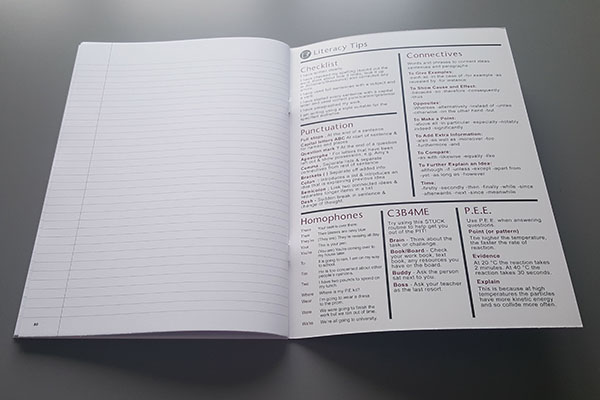 Literacy Tips
Checklist
Punctuation
Full stops - At the end of a sentence
Capital letters ABC At start of sentence &
for names and places
Question mark ? At the end of a question
Apostrophe - For letters that have been
Comma - Separate lists & separate
Brackets ( ) Separate off added info
Colon : Introduces a list & introduces an
Semicolon ; Link two connected ideas &
separate longer items in a list
Dash - Sudden break in sentence &
change of thought
Connectives
Words and phrases to connect ideas,
sentences and paragraphs
To Give Examples:
To Show Cause and Effect:
-because -so -therefore -consequently
-thus
Opposites:
-whereas -alternatively -instead of -unless
-otherwise -on the other hand -but
To Make a Point:
-above all -in particular -especially -notably
-indeed -significantly
To Add Extra Information:
-also -as well as -moreover -too
-furthermore -and
To Compare:
-as with -likewise -equally -like
To Further Explain an Idea:
-although -if -unless -except -apart from
-yet -as long as -however
Time:
-firstly -secondly -then -finally -while -since
-afterwards -next -since -meanwhile
Homophones
Their Their blazers are navy blue.
To It is going to rain. I am on my way
to school.
Too He is too concerned about other
people's opinions.
Two I have two pounds to spend on
my lunch.
Where Where is my P.E kit?
Wear I'm going to wear a dress
to the prom.
Were We were going to finish the
work but we ran out of time.
We're We're all going to university.
C3B4ME
Try using this STUCK
routine to help get you
out of the PIT!
Brain - Think about the
task or challenge.
Book/Board - Check
your work book, text
book, any resources you
have or the board.
Buddy - Ask the person
sat next to you
Boss - Ask your teacher
as the last resort
P.E.E.
Use P.E.E. when answering
questions
Point (or pattern)
The higher the temperature,
the faster the rate of
reaction.
Evidence
At 20 °C the reaction takes
2 minutes. At 40 °C the
reaction takes 30 seconds.
Explain
This is because at high
temperatures the particles
have more kinetic energy
and so collide more often.